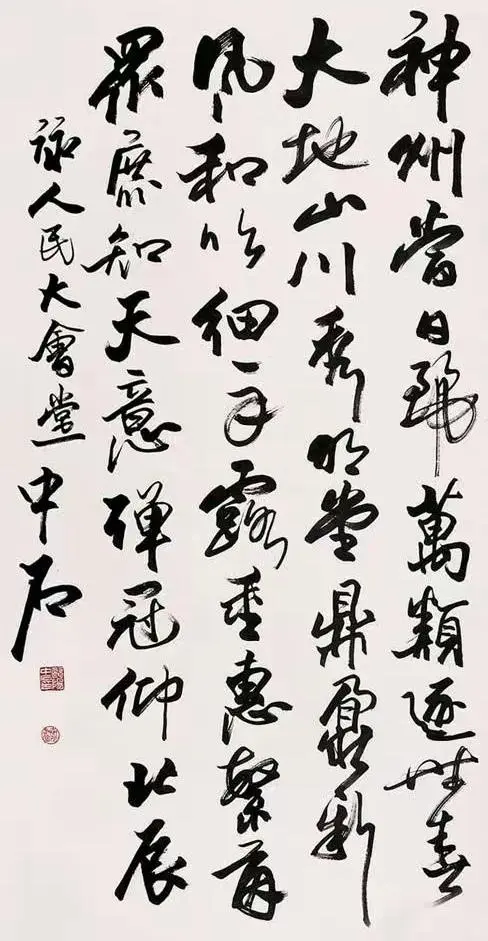 神州當日麗萬類逐時春
大地山川秀明堂鼎鼐新
風和吹細露垂惠繁
眾庶知天意彈冠仰北辰
詠人民大會堂 中石